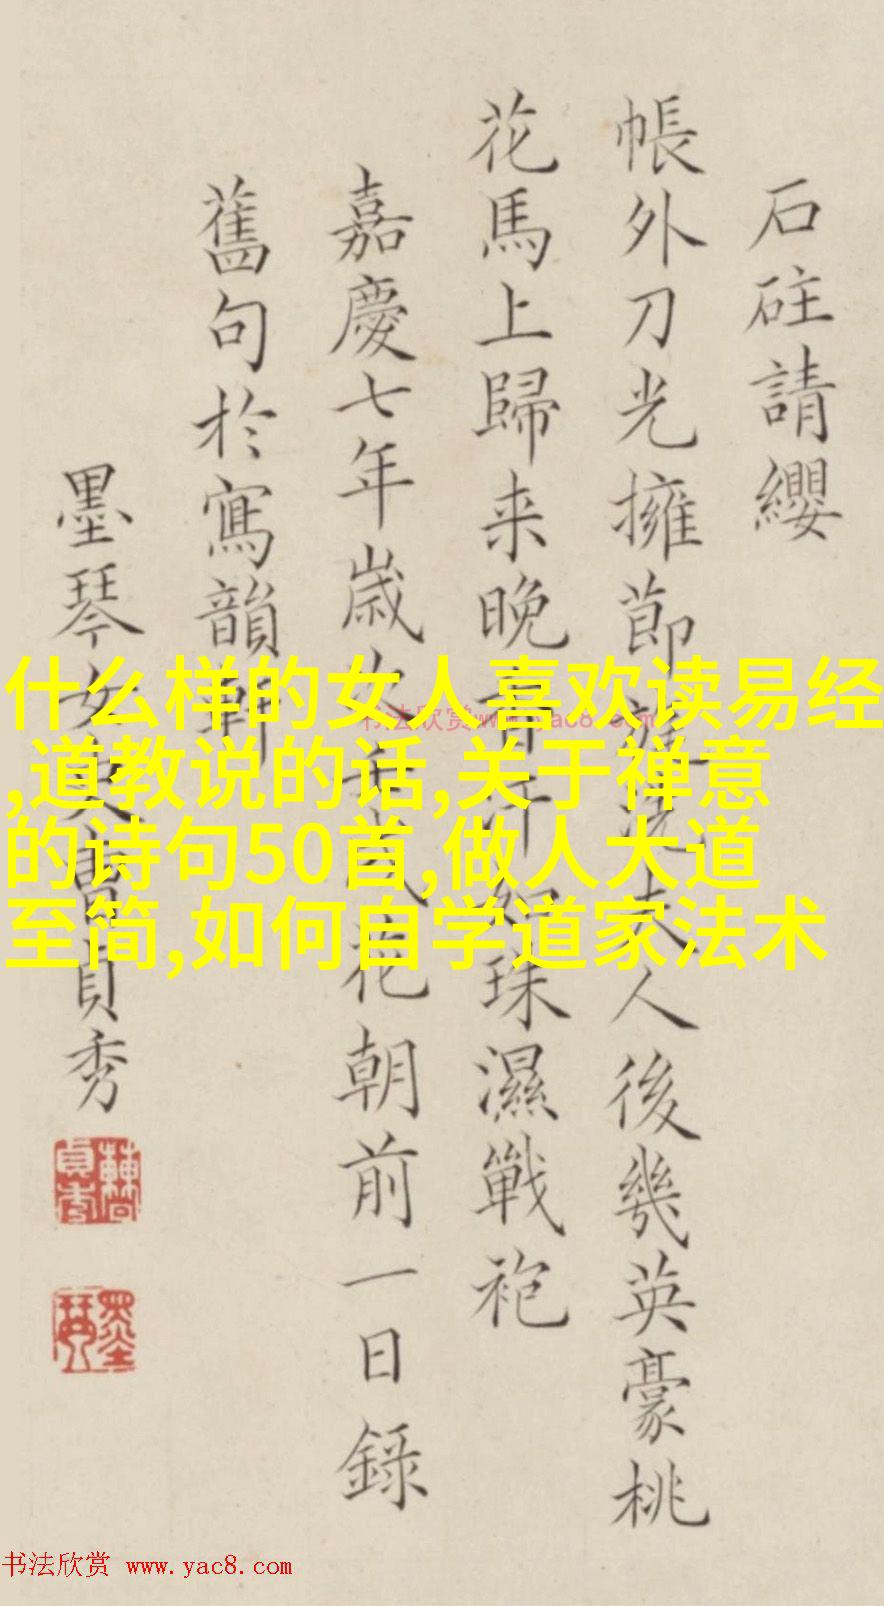 石砫請纓
帳外刀光擁莭人後幾英豪桃
花馬上歸来晚汗如珠濕戰袍
嘉慶七年嵗次花朝前一日錄
舊句於寫韻軒
墨琴女史曹貞秀
什么样的女人喜欢读易经
,道教说的话,关于禅意
的诗句50首,做人大道
至简,如何自学道家法术
书法欣赏 www.yac8.com
书法欣赏 www.yac8.com